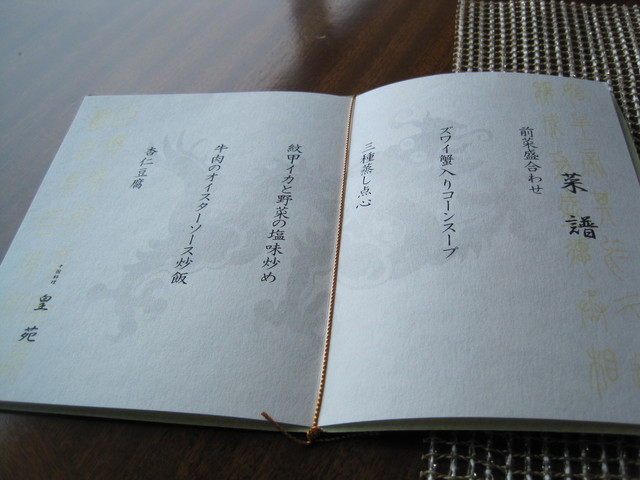 菜譜
前菜盛合わせ
ズワイ蟹入りコーンスープ
三種蒸し点心
紋甲イカと野菜の塩味炒め
牛肉のオイスターソース炒飯
杏仁豆腐
中国料理
皇苑